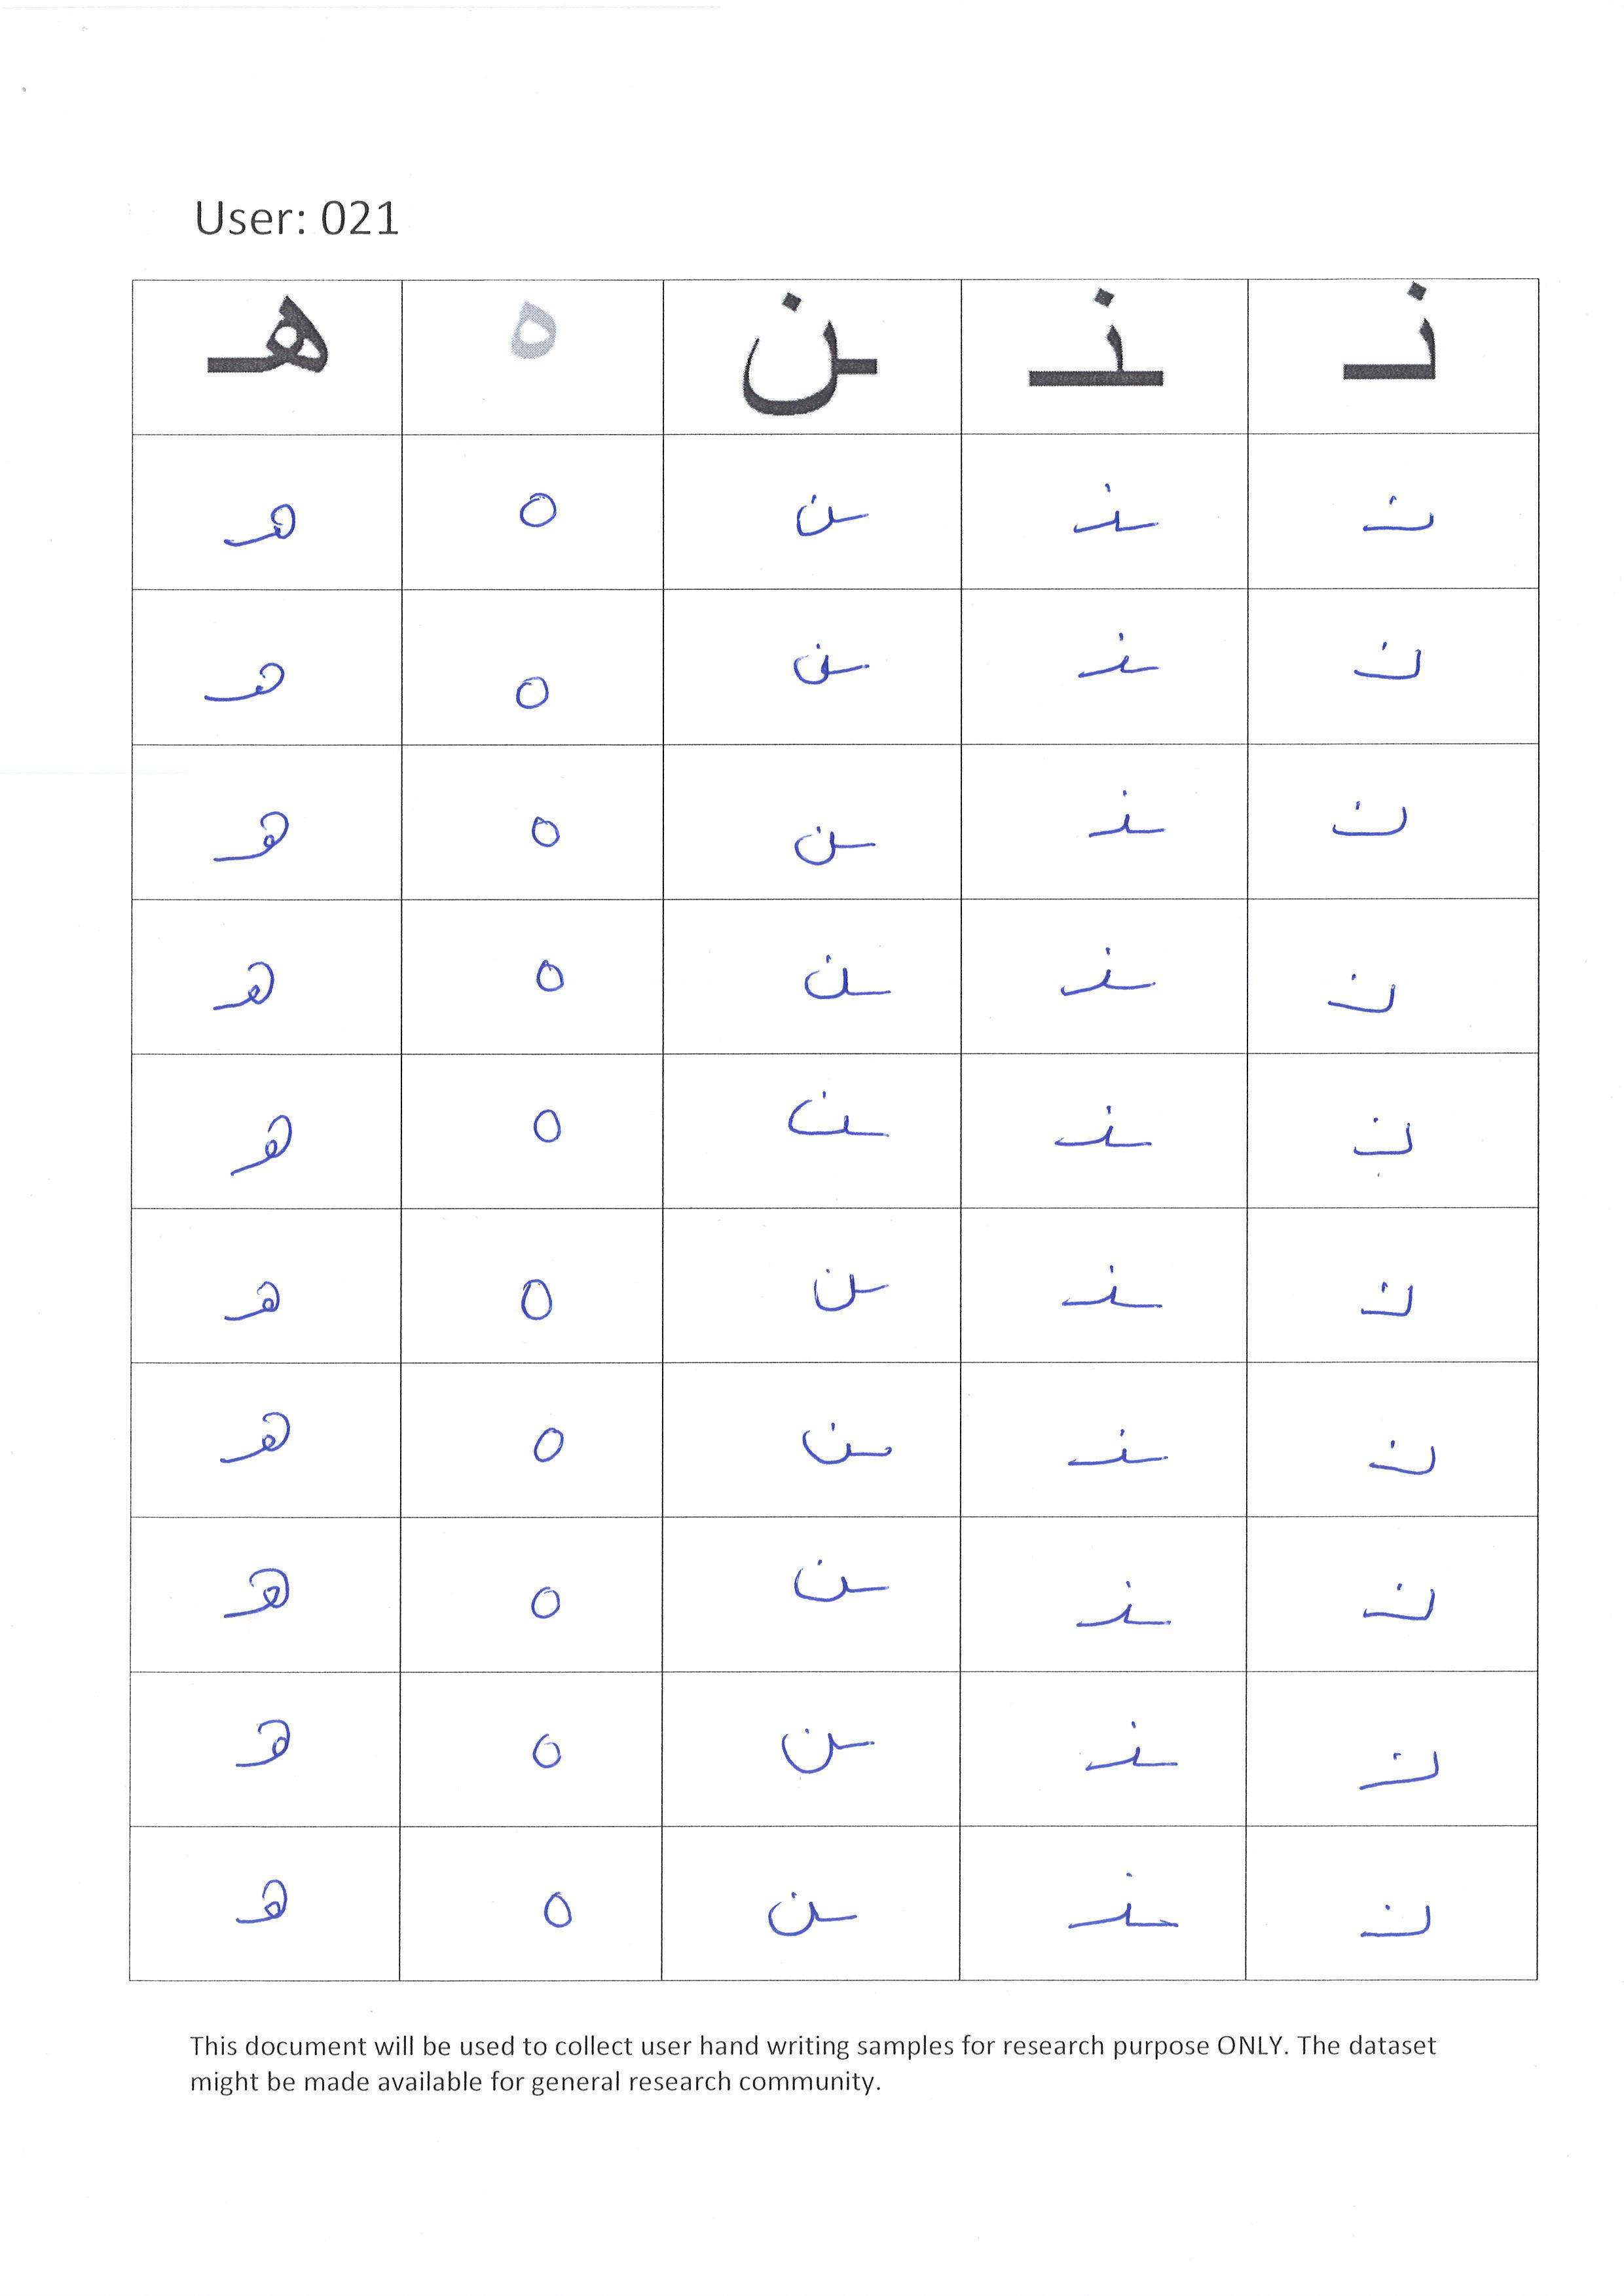 User: 021
نـ ـنـ ـن ه هـ
نـ ـنـ ـن ه هـ
نـ ـنـ ـن ه هـ
نـ ـنـ ـن ه هـ
نـ ـنـ ـن ه هـ
نـ ـنـ ـن ه هـ
نـ ـنـ ـن ه هـ
نـ ـنـ ـن ه هـ
نـ ـنـ ـن ه هـ
نـ ـنـ ـن ه هـ
نـ ـنـ ـن ه هـ
This document will be used to collect user hand writing samples for research purpose ONLY. The dataset
might be made available for general research community.